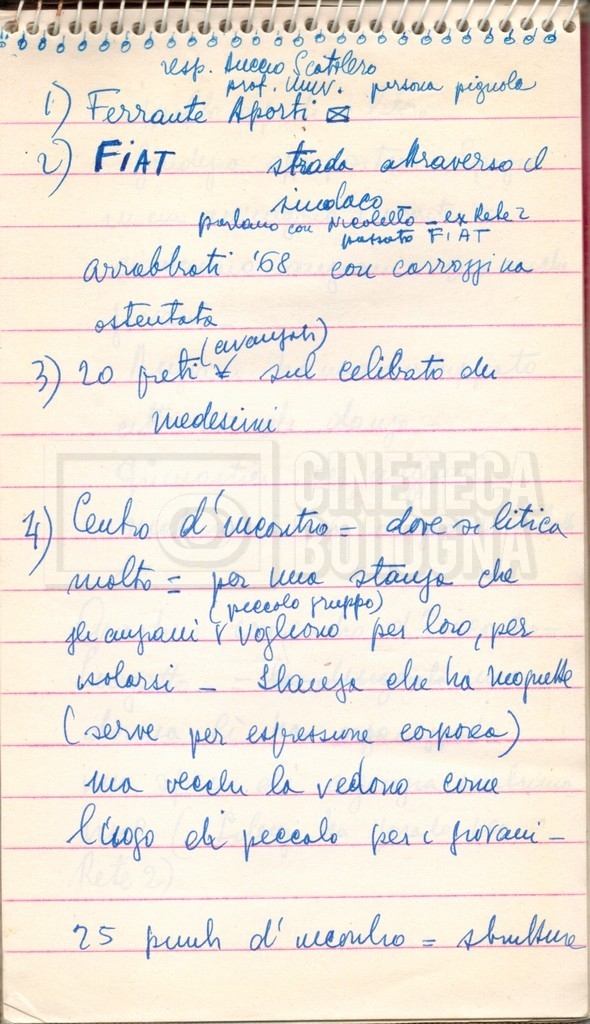 resp. Duccio Scatolero
prof. Univ. persona pignola
1) Ferrante Aporti
2) FIAT strada attraverso il
sindaco
parlano con Nicoletto - ex Rete 2
passato FIAT
arrabbiati '68 con carrozzina
ostentata
(avanzati)
3) 20 preti sul celibato dei
medesimi
CINETECA
BOLOGNA
4) Centro d'incontro = dove si litica
molto = per una stanza che
(piccolo gruppo)
gli anziani vogliono per loro, per
isolarsi - Stanza che ha moquette
(serve per espressione corporea)
ma vecchi la vedono come
luogo di peccato per i giovani -
25 punti d'incontro = strutture